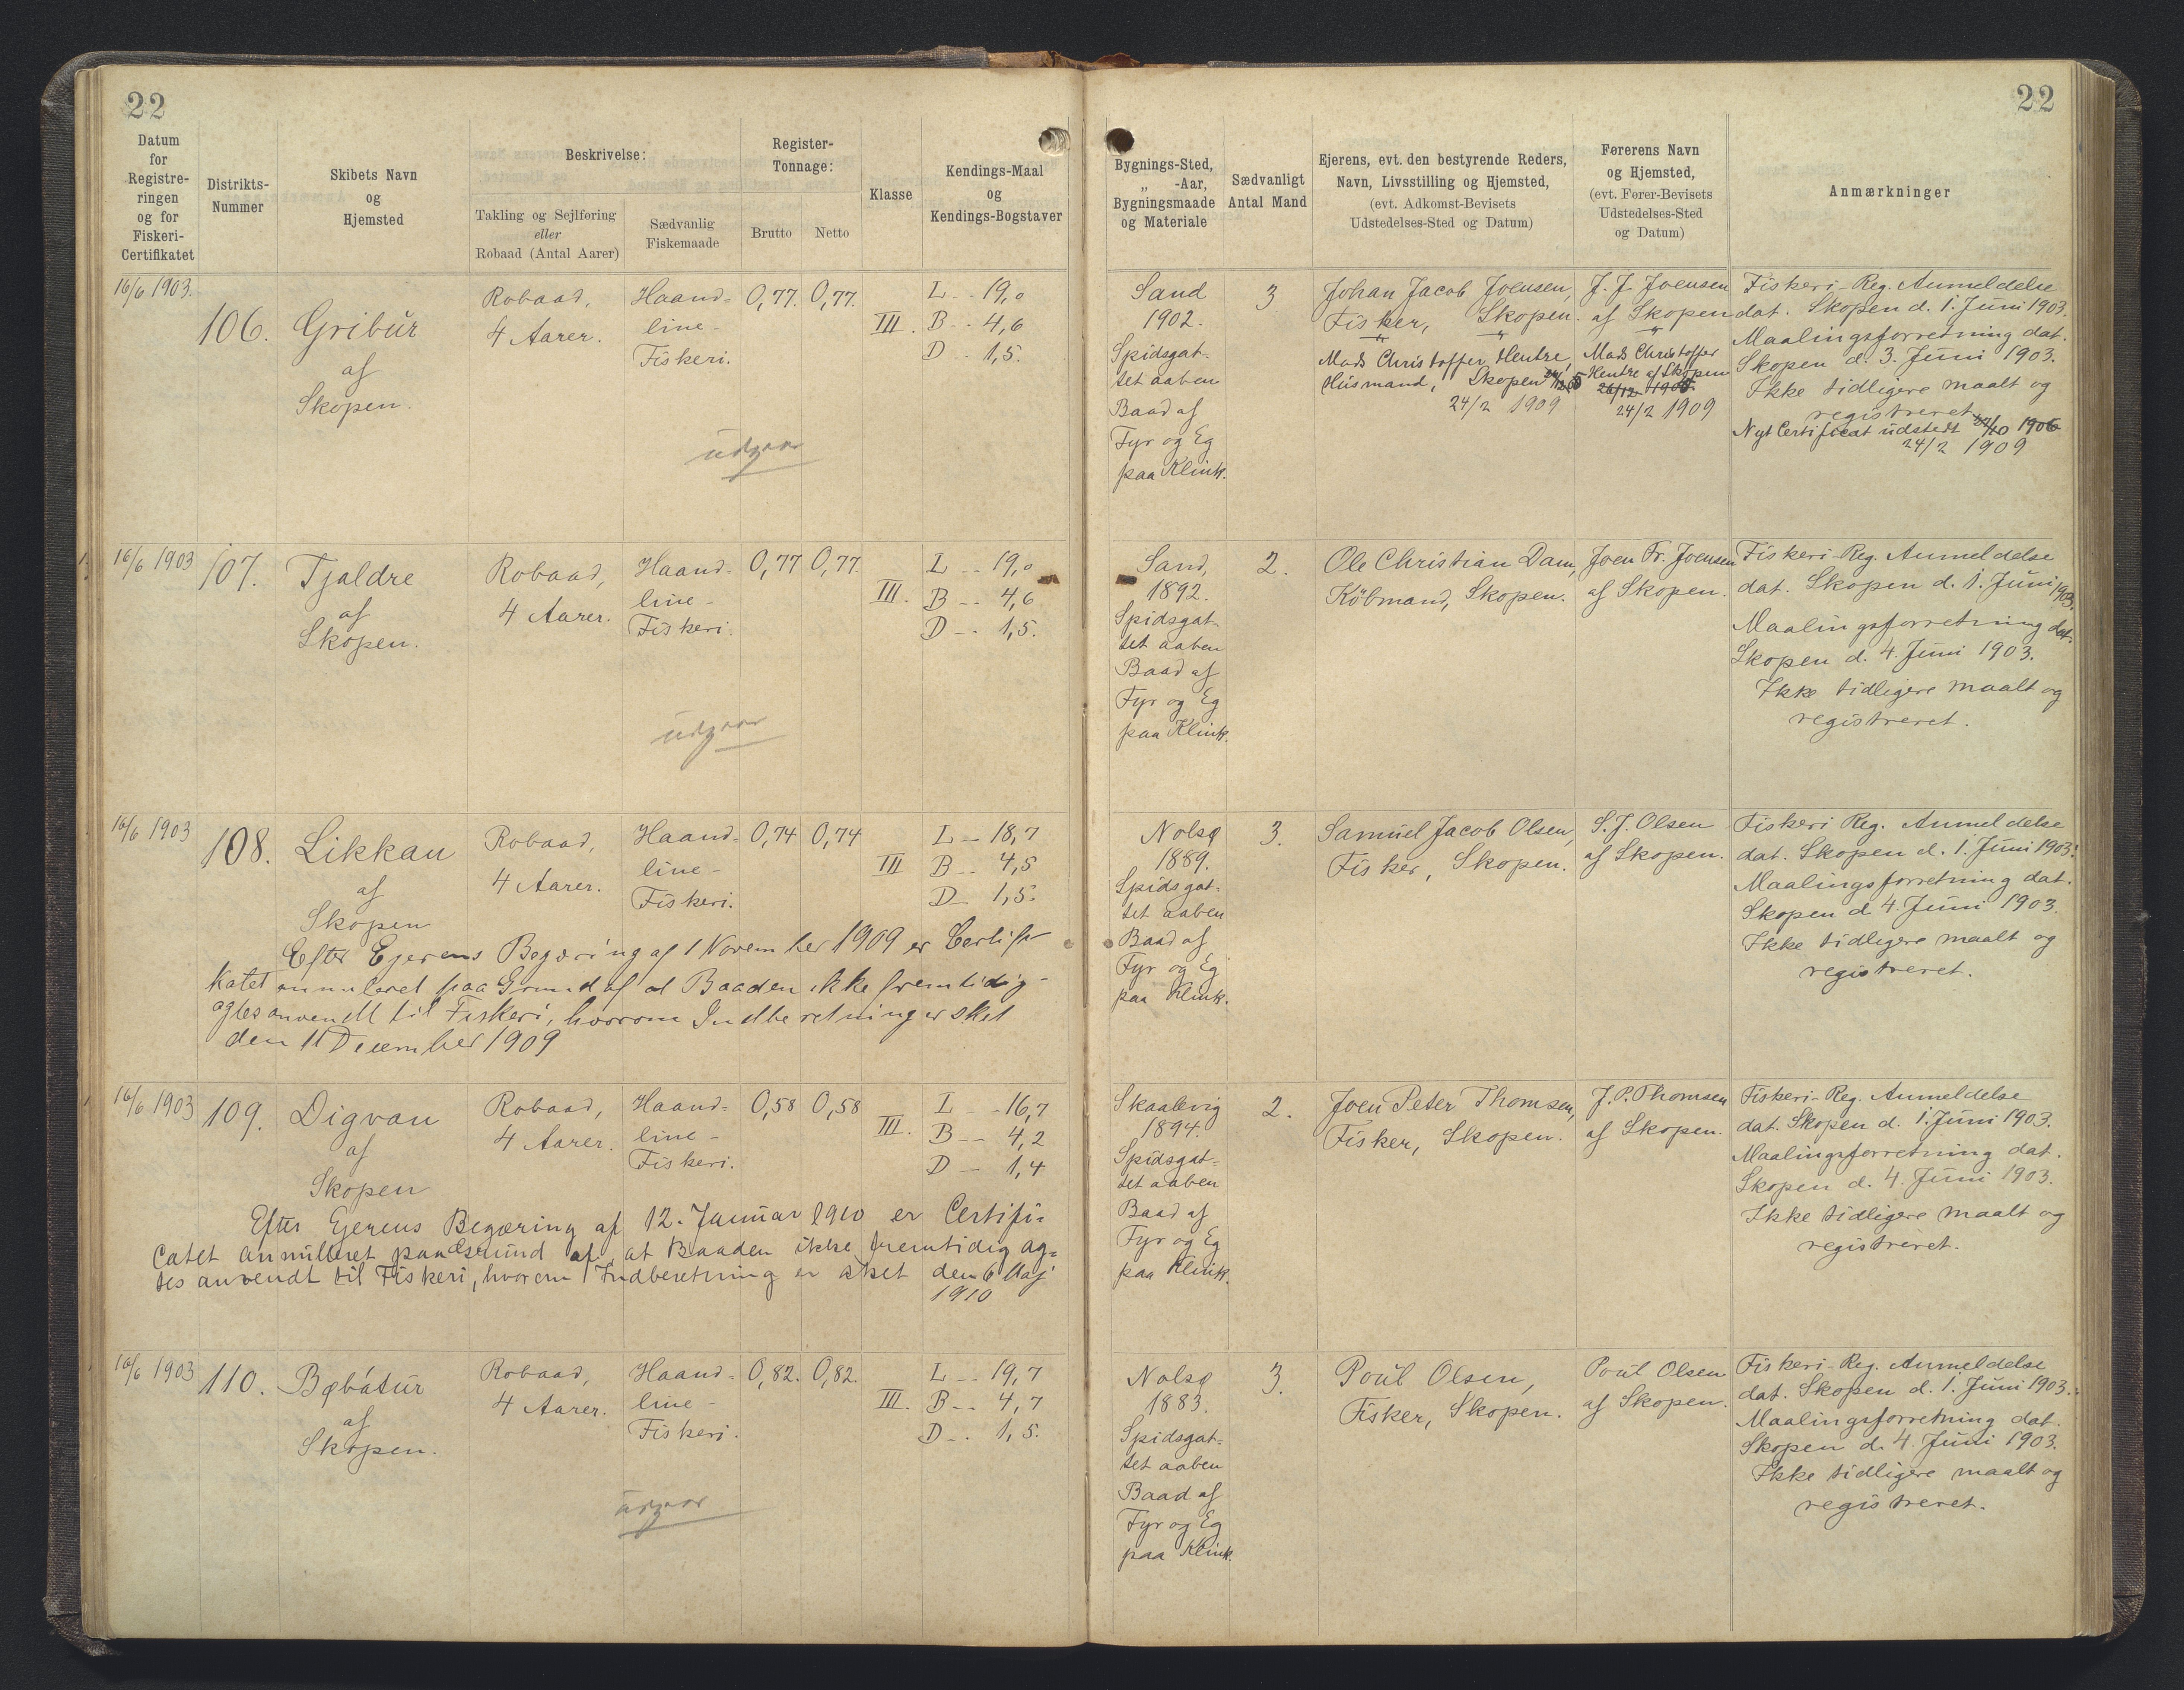 22
22
Datum
for
Registre-
ringen
og for
Fiskeri-
Certifikatet
Distrikts-
Nummer
Skibets Navn
og
Hjemsted
Beskrivelse:
Takling og Sejlføring
eller
Robaad (Antal Aarer)
Sædvanlig
Fiskemaade
Register-
Tonnage:
Brutto
Netto
Klasse
Kendings-Maal
og
Kendings-Bogstaver
Bygnings-Sted,
„ -Aar,
Bygningsmaade
og Materiale
Sædvanligt
Antal Mand
Ejerens, evt. den bestyrende Reders,
Navn, Livsstilling og Hjemsted,
(evt. Adkomst-Bevisets
Udstedelses-Sted og Datum)
Førerens Navn
og Hjemsted,
(evt. Fører-Bevisets
Udstedelses-Sted
og Datum)
Anmærkninger
16/6 1903.
106.
Gribur
af
Skopen.
Robaad,
4 Aarer.
Haand-
line-
Fiskeri.
0,77.
0,77.
III.
L .. 19,0
B .. 4,6
D .. 1,5.
udgaar
Sand
1902.
Spidsgat-
tet aaben
Baad af
Fyr og Eg
paa Klink.
3
Johan Jacob Joensen,
Fisker, Skopen.
Mads Christoffer Hentze,
Husmand, Skopen
24/2 1909
J. J. Joensen
af Skopen
Mads Christoffer
Hentze af Skopen
24/2 1909
Fiskeri-Reg. Anmeldelse
dat. Skopen d. 1. Juni 1903.
Maalingsforretning dat.
Skopen d. 3. Juni 1903.
Ikke tidligere maalt og
registreret
Nyt Certificat udstedt
24/2 1909
16/6 1903
107.
Tjaldre
af
Skopen.
Robaad,
4 Aarer.
Haand-
line-
Fiskeri.
0,77
0,77.
III.
L .. 19,0
B .. 4,6
D .. 1,5.
udgaar
Sand,
1892.
Spidsgat-
tet aaben
Baad af
Fyr og Eg
paa Klink.
2.
Ole Christian Dam,
Købmand, Skopen.
Joen Fr. Joensen
af Skopen.
Fiskeri-Reg. Anmeldelse
dat. Skopen d. 1. Juni 1903.
Maalingsforretning dat.
Skopen d. 4. Juni 1903.
Ikke tidligere maalt og
registreret.
16/6 1903
108.
Likkan
af
Skopen
Robaad,
4 Aarer.
Haand-
line-
Fiskeri.
0,74
0,74
III
L .. 18,7
B .. 4,5
D .. 1,5.
Efter Ejerens Begæring af 1 November 1909 er Certifi-
katet annuleret paa Grund af at Baaden ikke fremtidig
agtes anvendt til Fiskeri, hvorom Indberetning er sket
den 11 December 1909
Nolsø
1889.
Spidsgat-
tet aaben
Baad af
Fyr og Eg
paa Klink.
3.
Samuel Jacob Olsen,
Fisker, Skopen.
S. J. Olsen
af Skopen.
Fiskeri Reg. Anmeldelse
dat. Skopen d. 1. Juni 1903.
Maalingsforretning dat.
Skopen d 4. Juni 1903.
Ikke tidligere maalt og
registreret.
16/6 1903
109.
Digvan
af
Skopen
Robaad,
4 Aarer.
Haand-
line-
Fiskeri.
0,58
0,58
III.
L .. 16,7
B .. 4,2
D .. 1,4
Efter Ejerens Begæring af 12. Januar 1910 er Certifi-
catet annulleret paa Grund af, at Baaden ikke fremtidig ag-
tes anvendt til Fiskeri, hvorom Indberetning er sket den 6 Maj
1910
Skaalevig
1894.
Spidsgat-
tet aaben
Baad af
Fyr og Eg
paa Klink.
2.
Joen Peter Thomsen,
Fisker, Skopen.
J. P. Thomsen
af Skopen.
Fiskeri-Reg. Anmeldelse
dat. Skopen d. 1. Juni 1903.
Maalingsforretning dat.
Skopen d. 4. Juni 1903.
Ikke tidligere maalt og
registreret.
16/6 1903
110.
Bøbátur
af
Skopen.
Robaad,
4 Aarer.
Haand-
line-
Fiskeri.
0,82.
0,82.
III.
L .. 19,7
B .. 4,7
D .. 1,5.
udgaar
Nolsø
1883.
Spidsgat-
tet aaben
Baad af
Fyr og Eg
paa Klink.
3.
Poul Olsen,
Fisker, Skopen.
Poul Olsen
af Skopen.
Fiskeri-Reg. Anmeldelse
dat. Skopen d. 1. Juni 1903.
Maalingsforretning dat.
Skopen d. 4. Juni 1903.
Ikke tidligere maalt og
registreret.